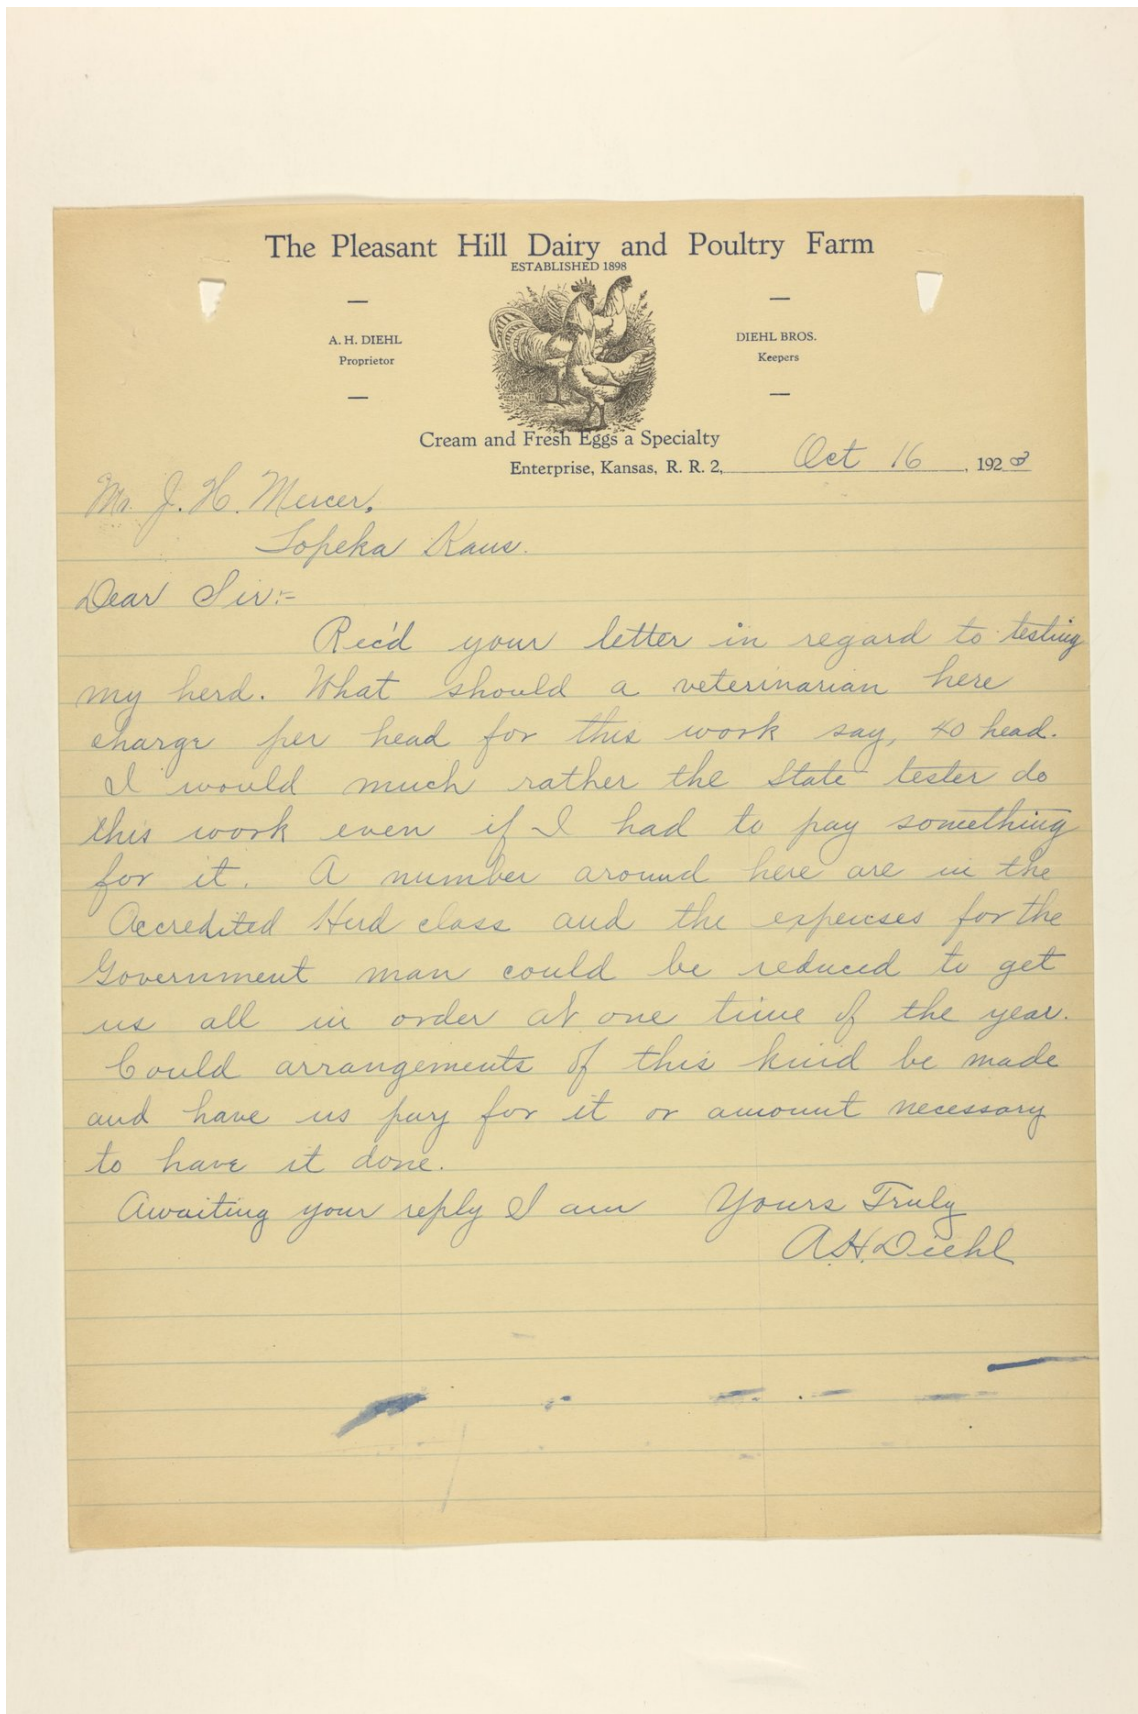 The Pleasant Hill Dairy and Poultry Farm
ESTABLISHED 1898
A. H. DIEHL
Proprietor
DIEHL BROS.
Keepers
Cream and Fresh Eggs a Specialty
Enterprise, Kansas, R. R. 2, Oct 16, 1923
Mr. J. H. Mercer.
Topeka Kans.
Dear Sir:-
Rec'd your letter in regard to testing
my herd. What should a veterinarian here
charge per head for this work say, 40 head.
I would much rather the State tester do
this work even if I had to pay something
for it. A number around here are in the
Accredited Herd class and the expenses for the
Government man could be reduced to get
us all in order at one time of the year.
Could arrangements of this kind be made
and have us pay for it or amount necessary
to have it done.
Awaiting your reply I am Yours Truly
A.H. Diehl